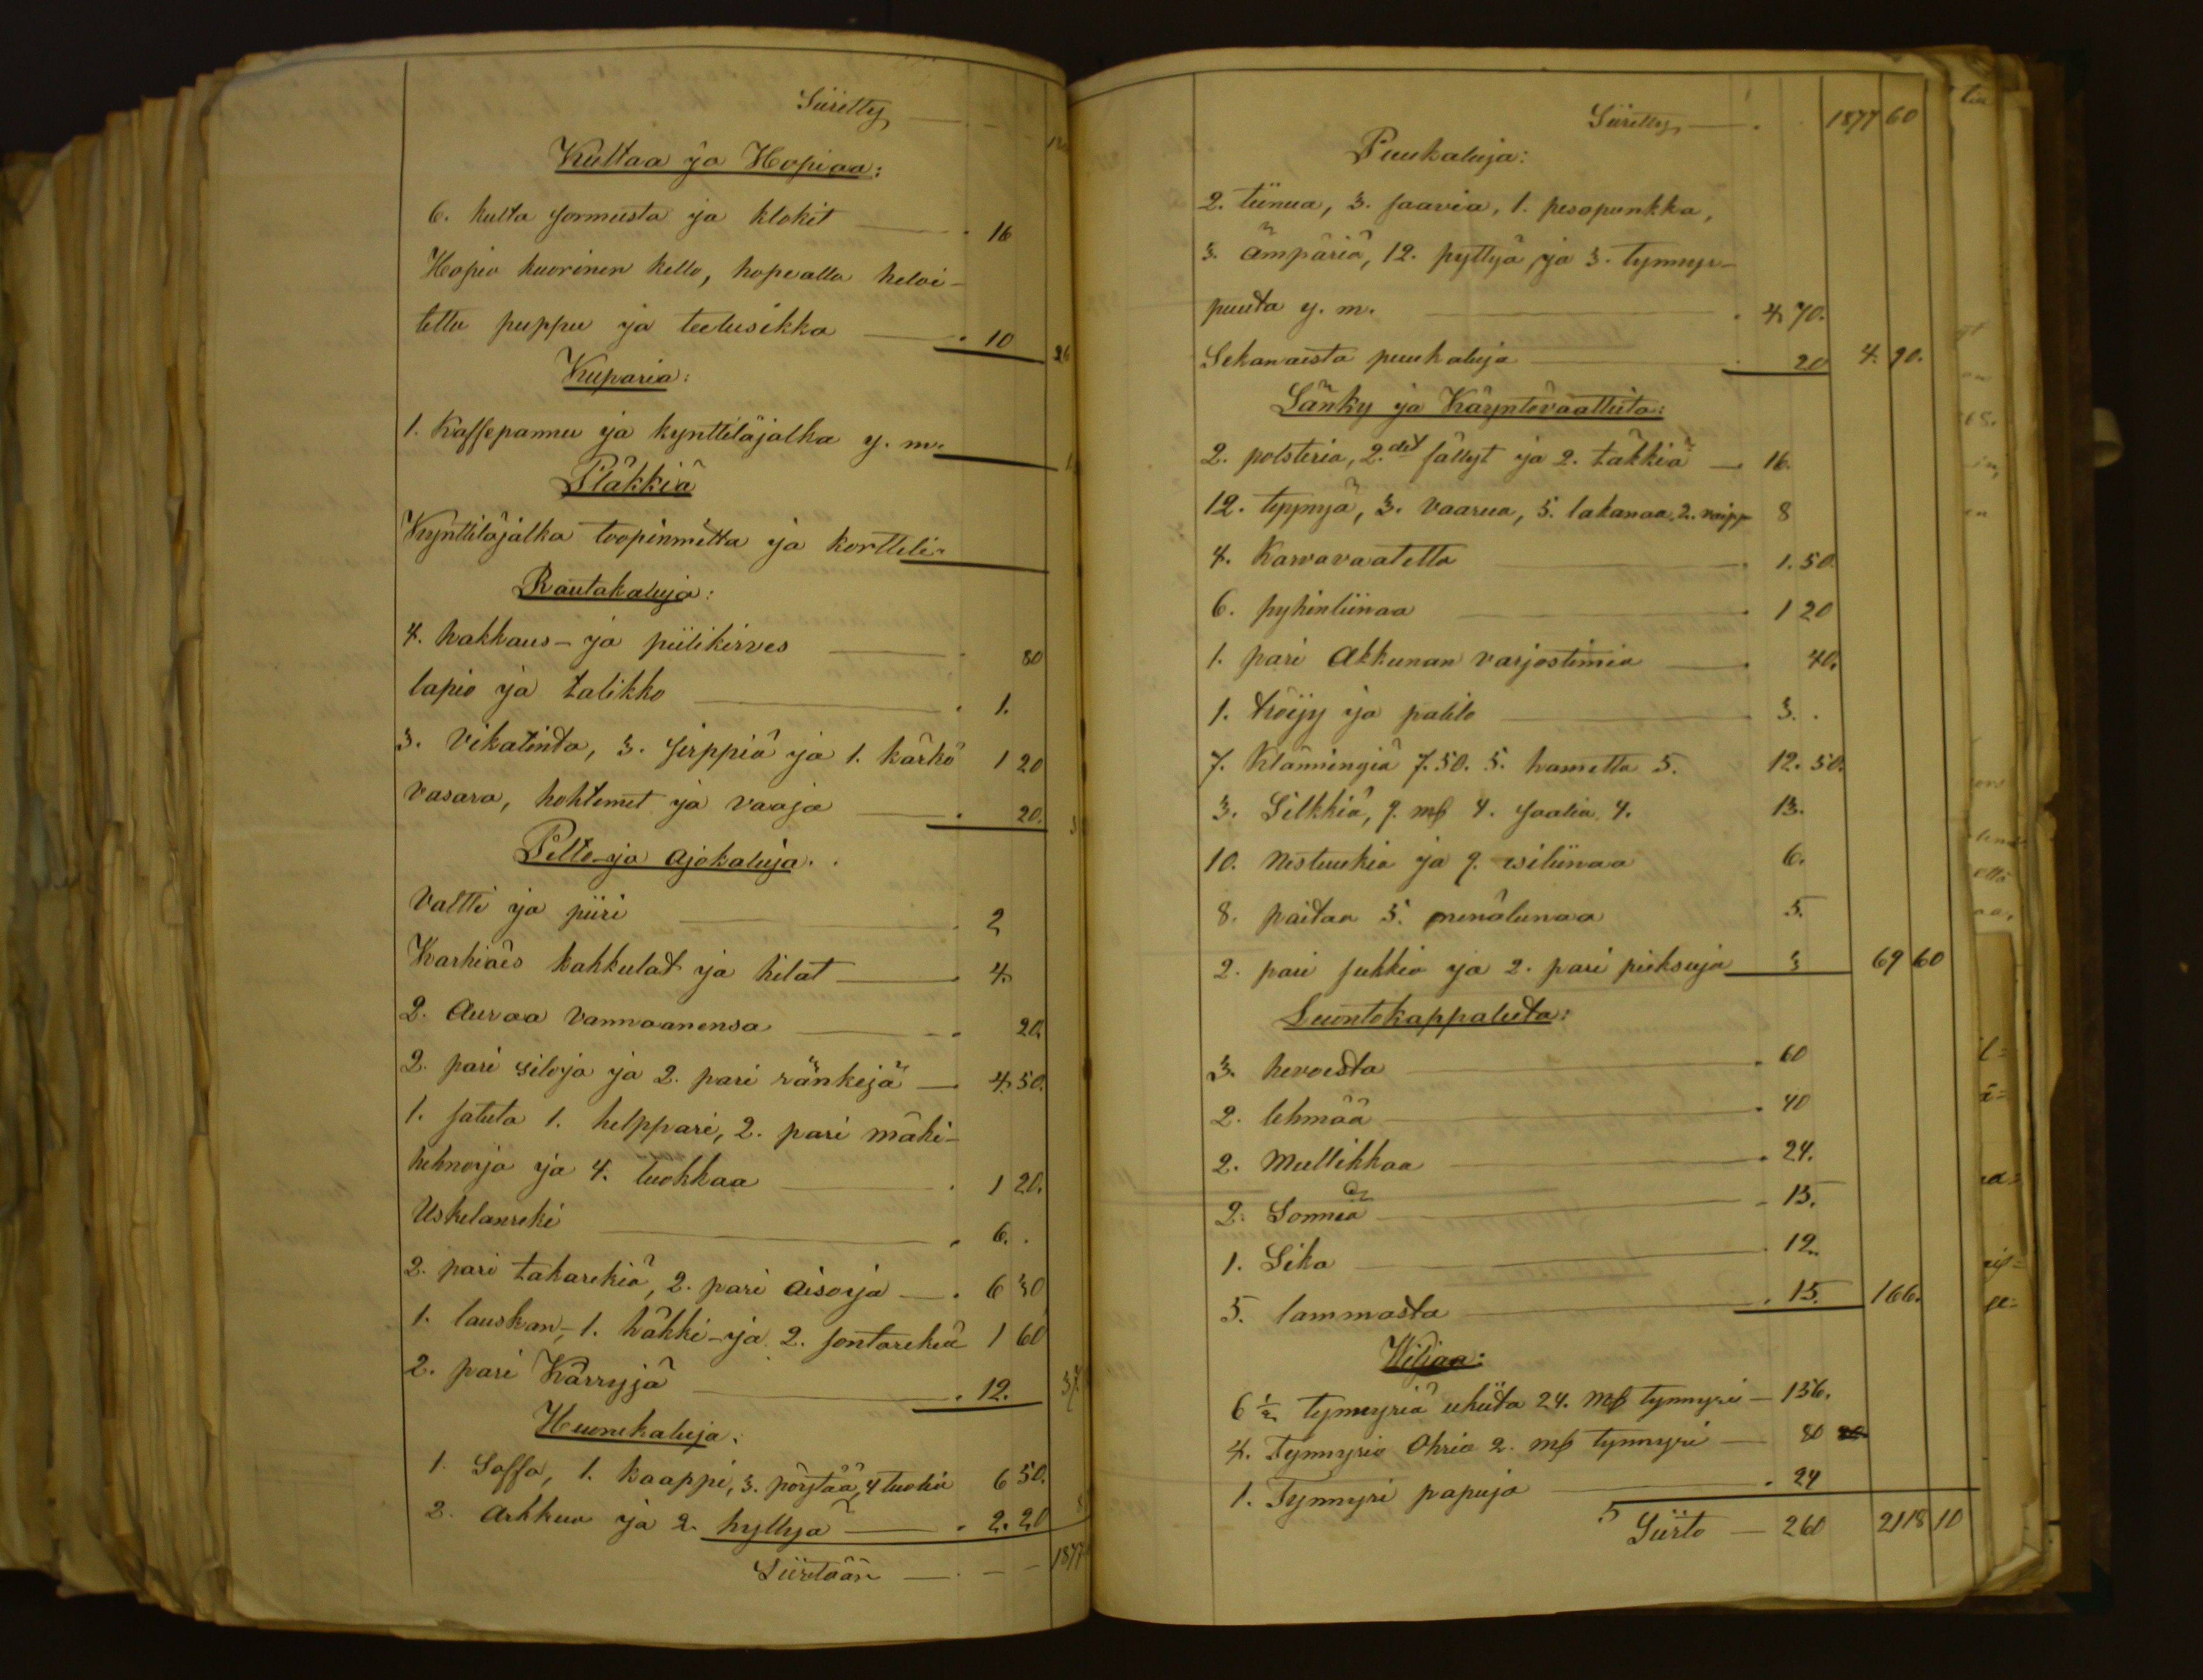 Siiretty
Kultaa ja Hopiaa:
6. kulta sormusta ja klokit — 16
Hopia kuorinen kello, hopealla heloi-
tettu puppu ja teelusikka — 10 26
Kuparia:
1. Kaffepannu ja kynttiläjalka y. m.
Pläkkiä
Kynttiläjalka toopinmitta ja kortteli
Rautakaluja:
4. hakkaus- ja piilikirves — 80
lapio ja talikko — 1.
3. Vikatinta, 3. sirppiä ja 1. kärhö 1 20
vasara, hohtemet ja vaaja — 20.
Pelto- ja Ajokaluja.
Valtti ja piiri — 2
Karhiais kahkulat ja hilat — 4.
2. Auraa Vannaanensa — 20.
2. pari siloja ja 2. pari ränkejä — 4. 50.
1. satula 1. helppari, 2. pari mäki-
hihnoja ja 4. luokkaa — 1 20.
Uskelanreki — 6.
2. pari takarekiä, 2. pari Aisoja — 6 30
1. lauskan-, 1. häkki- ja 2. sontarekiä 1 60
2. pari Kärryjä — 12. 37
Huonekaluja:
1. Soffa, 1. kaappi, 3. pöytää, 4 tuolia 6 50.
2. Arkkua ja 2. hyllyä — 2. 20
Siiretään — 1877
Siiretty — 1877 60
Puukaluja:
2. tiinua, 3. saavia, 1. pesopunkka,
3. ämpäriä, 12. pyttyä ja 3. tynnyr-
puuta y. m. — 4. 70.
Sekanaista puukaluja — 20 4. 90.
Sänky ja Käyntövaatteita:
2. polsteria, 2. det fällyt ja 2. täkkiä — 16.
12. tyynyä, 3. vaarua, 5. lakanaa, 2. vaipp 8
4. Karvavaatetta — 1. 50.
6. pyhinliinaa — 1 20
1. pari Akkunan varjostimia — 40.
1. tröijy ja palito — 3.
7. Klänningiä 7.50. 5. hametta 5. 12. 50.
3. Silkkiä, 9. mk 4. saalia 4. 13.
10. nestuukia ja 9. esiliinaa 6.
8. paitaa 5. nenäliinaa 5.
2. pari sukkia ja 2. pari pieksuja 3 69 60
Luontokappaleita:
3. hevoista — 60
2. lehmää — 40
2. Mullikkaa — 24.
2. Sonnia — 15.
1. Sika — 12.
5. lammasta — 15. 166.
Wiljaa:
6 ½ tynnyriä ruhiita 24. mk tynnyri — 156.
4. Tynnyriä Ohria 2. mk tynnyri — 80
1. Tynnyri papuja — 24
Siirto — 260 2118 10